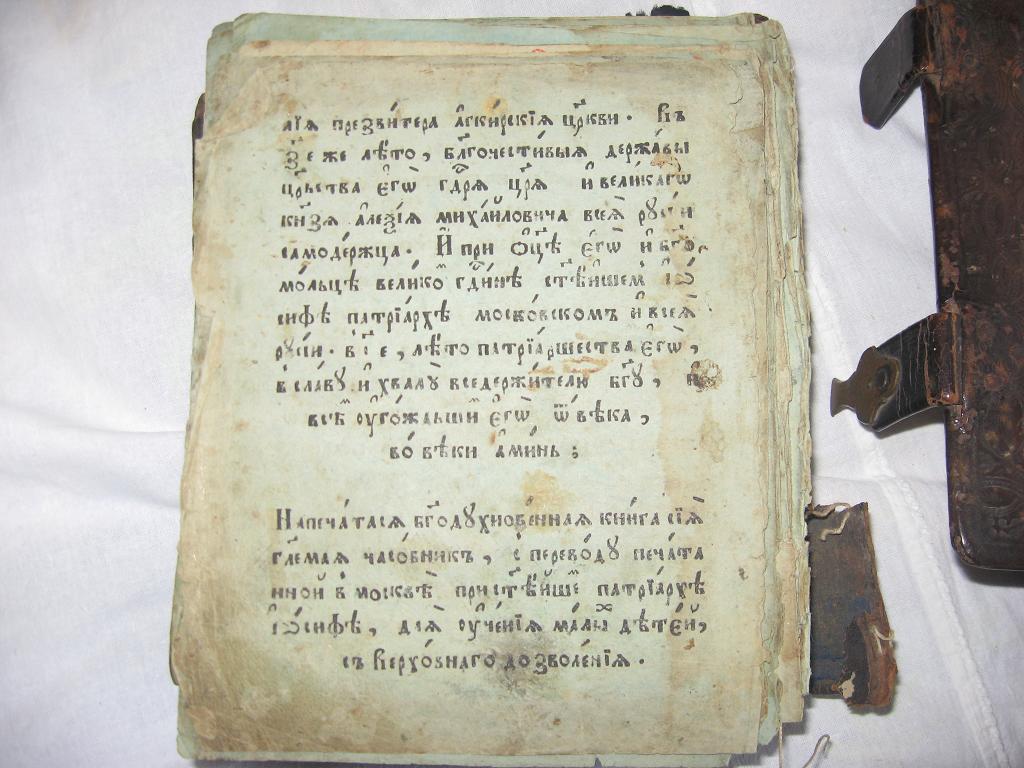 лїѧ презви́тера а҆скирскїѧ цр҃кви. Въ
з҃ е же лѣ́то, бл҃гочести́выѧ держа́вы
ца́рьства є҆гѡ̀ гд҃рѧ цр҃ѧ и҆ вели́кагѡ
кн҃зѧ а҆леѯі́ѧ миха́йловича всеѧ̀ рꙋсі́и
самоде́ржца. И҆ при ѻ҆ц҃ѣ̀ є҆гѡ̀ и҆ бг҃о
мо́льцѣ вели́ко гд҃и́нѣ ст҃ѣ́йшем і҆ѡ́
сифѣ патрїа́рхѣ моско́вском и҆ всеѧ̀
рꙋсі́и. в є҃і е, лѣ́то патрїа́ршества є҆гѡ̀,
в сла́вꙋ и҆ хвалꙋ̀ вседержи́телю бг҃ꙋ, и҆
всѣ ᲂу҆гожа́ьши є҆гѡ̀ ѿ вѣ́ка,
во́ вѣки а҆ми́нь :
Напеча́тасѧ бг҃одꙋхнове́ннаѧ кни́га сїѧ̀
гл҃емаѧ часо́вникъ, с̾ перево́дꙋ печа́та
нной в̾ москвѣ̀ при ст҃ѣ́йше патрїа́рхѣ
і҆ѡ́сифѣ, длѧ ᲂу҆че́нїѧ ма́лых дѣте́й,
съ Верхо́внаго дозволе́нїѧ.